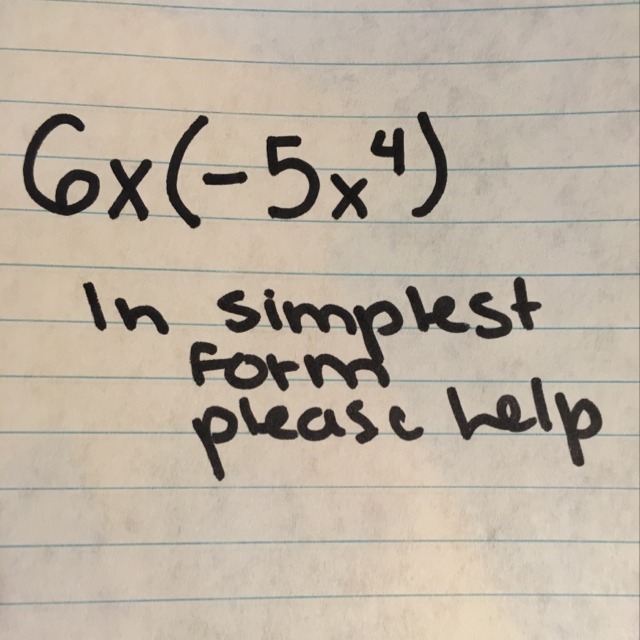 6x(-5x⁴)
In simplest
Form
please help